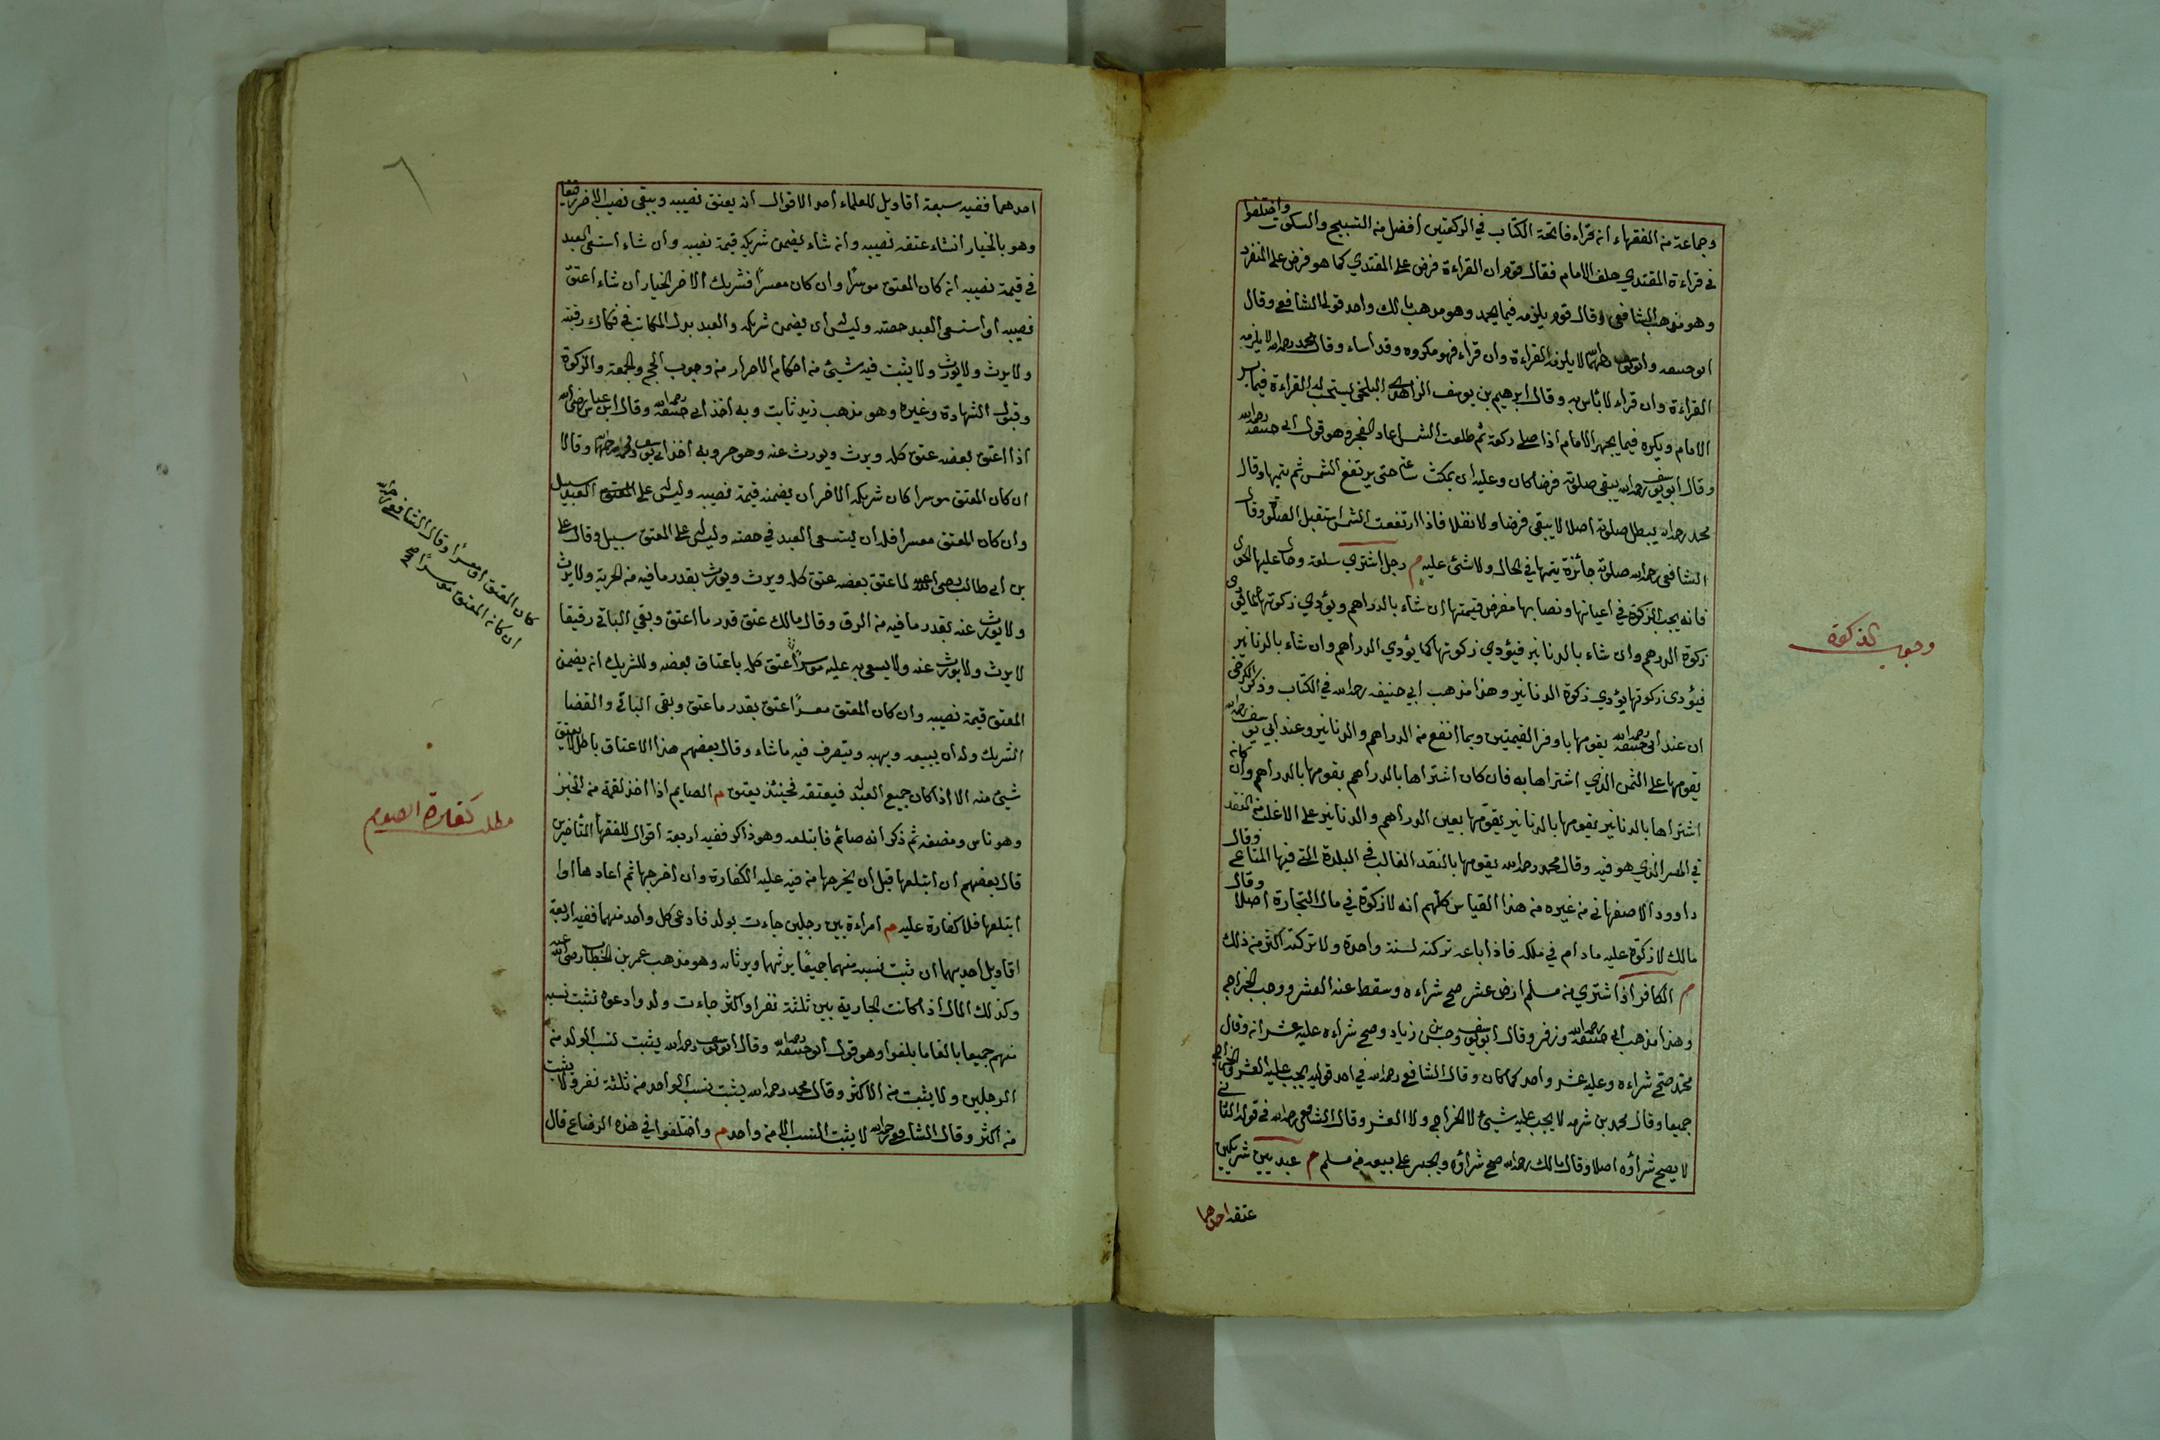 وجماعة من الفقهاء ان قراءة فاتحة الكتاب في الركعتين افضل من التسبيح والسكوت واختلفوا
في قراءة المقتدي خلف الامام فقال قوم ان القراءة فرض على المقتدي كما هو فرض على المنفرد
وهو مذهب الشافعي وقال قوم يلزمه فيما يجهر وهو مذهب مالك واحد قولي الشافعي وقال
ابو حنيفه وابو يوسف رحمهما الله لا يلزمه القراءة وان قراء فهو مكروه وقد اساء وقال محمد رحمه الله لا يلزمه
القراءة وان قراء لا باس به وقال ابرهيم بن يوسف الزاهد البلخي يستحب له القراءة فيما يسر
الامام ويكره فيما يجهر الامام اذا صلى ركعة ثم طلعت الشمس اعاد الفجر وهو قول ابي حنيفه رحمه الله
وقال ابو يوسف رحمه الله يبقى صلوته فرضا كان وعليه ان يمكث ساعة حتى يرتفع الشمس ثم يتمها وقال
محمد رحمه الله يبطل صلوته اصلا لا يبقى فرضا ولا نفلا فاذا ارتفعت الشمس استقبل الصلوة وقال
الشافعي رحمه الله صلوته جائزة يتمها في الحال ولا شئ عليه م رجل اشترى سلعة وحال عليها الحول
فانه يجب الزكوة في اعيانها ونصابها مفرض قيمتها ان شاء بالدراهم ويؤدي زكوتها كما يؤدى
زكوة الدرهم وان شاء بالدنانير فيؤدي زكوتها كما يؤدي الدراهم وان شاء بالدنانير
فيؤدى زكوتها يؤدي زكوة الدنانير وهذا مذهب ابي حنيفه رحمه الله في الكتاب وذكر الكرخي
ان عند ابي حنيفه رحمه الله يقومها باوفر القيمتين وبما انفع من الدراهم والدنانير وعند ابي يوسف رحمه الله
يقومها على الثمن الذي اشتراها به فان كان اشتراها بالدراهم يقومها بالدراهم وان كانه
اشتراها بالدنانير يقومها بالدنانير يقومها بعين الدراهم والدنانير على الاغلب من النقد
في المصر الذي هو فيه وقال محمد رحمه الله يقومها بالنقد الغالب في البلدة التي فيها المتاع وقال
داوود الاصفهاني من غيره من هذا القياس كلهم انه لا زكوة في مال التجارة اصلا وقال
مالك لا زكوة عليه مادام في ملكه فاذا اباعه تزكته لسنة واحدة ولا تزكته اكثر من ذلك
م الكافر اذا اشترى من مسلم ارض عشر صح شراءه وسقط عنه العشر ووجب الخراج
وهذا مذهب ابي حنيفه رحمه الله وزفر وقال ابو يوسف وحسن بن زياد وصح شراءه عليه عشرانه وقال
محمد صح شراءه وعليه عشر واحد كما كان وقال الشافعي رحمه الله في احد قوليه يجب عليه العشر والخراج
جميعا وقال محمد بن شرمه لا يجب عليه شيئ لا الخراج ولا العشر وقال الشافعي رحمه الله في قوله الثاني
لا يصح شراؤه اصلا وقال مالك رحمه الله صح شراؤه ويجبر على بيعه من مسلم م عبد بين شريكين
عتقه احدهما
وجوب الزكوة
احدهما ففيه سبعة اقاويل للعلماء احد الاقوال انه يعتق نصيبه ويبقى نصيب الاخر رقيقا
وهو بالخيار انشاء عتقه نصيبه وانه شاء يضمن شريكه قيمة نصيبه وان شاء استسعى العبد
في قيمة نصيبه ان كان المعتق موسرا وان كان معسرا فشريك الاخر الخيار ان شاء اعتق
نصيبه او استسعى العبد حصته وليس له ان يضمن شريكه والعبد بدل المكاتب في فكاك رقبته
ولا يرث ولا يورث ولا يثبت فيه شيئ من احكام الاحرار من وجوب الحج والجمعة والزكوة
وقبول الشهادة وغيره وهو مذهب زيد ثابت وبه اخذ ابي حنيفه رحمه الله وقال ابن عباس رضي الله
اذا اعتق بعضه عتق كله ويرث ويورث عنه وهو حر وبه اخذ ابي يوسف ومحمد رحمهما الله وقالا
ان كان المعتق موسرا كان شريكه الاخر ان يضمنه قيمة نصيبه وليس له على المعتق العبد سبيل
وان كان المعتق معسرا فله ان يستسعى العبد في حصته وليس له على المعتق سبيل وقال على
بن ابي طالب رضي الله عنه لما عتق بعضه عتق كله ويرث ويورث بقدر ما فيه من الحرية ولا يرث
ولا يورث عنه بقدر ما فيه من الرق وقال مالك عتق قدر ما اعتق وبقي الباقي رقيقا
لا يرث ولا يورث عنه ولا يسعى به عليه موسرا عتق كله باعتاق بعضه وللشريك انه يضمن
المعتق قيمة نصيبه وان كان المعتق معسرا عتق بقدر ما عتق وبقى الباقي والقضا
الشريك وله ان يبيعه ويهبه ويتصرف فيه ما شاء وقال بعضهم هذا الاعتاق باطل لا يعتق
شيئ منه الا اذا كان جميع العبد له فيعتقه فحينئذ يعتق م الصايم اذا اخذ لقمة من الخبز
وهو ناس ومضغه ثم ذكر انه صائم فابتلعه وهو ذاكر ففيه اربعة اقوال للفقهأ المتأخرين
قال بعضهم ان ابتلعها قبل ان يخرجها من فيه عليه الكفارة وان اخرجها ثم اعادها او
ابتلعها فلا كفارة عليه م امراءة بين رجلين جاءت بولد فادعى كل واحد منهما ففيه اربعة
اقاويل احديهما ان ثبت نسبه منهما جميعا يرثهما ويرثانه وهو مذهب عمر بن الخطاب رضي الله عنه
وكذلك المال اذا كانت الجارية بين ثلثة نفر او اكثر جاءت ولد وادعوه تثبت نسبه
منهم جميعا بالغا ما بلغوا وهو قول ابو حنيفه رحمه الله وقال ابو يوسف رحمه الله يثبت نسب الولد من
الرجلين ولا يثبت من الاكثر وقال محمد رحمه الله يثبت نسب الواحد من ثلثة نفر ولا يثبت
من اكثر وقال الشافعي رحمه الله لا يثبت النسب الا من واحد م واختلفوا في هذه الرضاع قال
كان المعتق او معسرا وقال الشافعي رحمه الله
ان كانه المعتق موسرا صح
مطلب كفارة الصوم